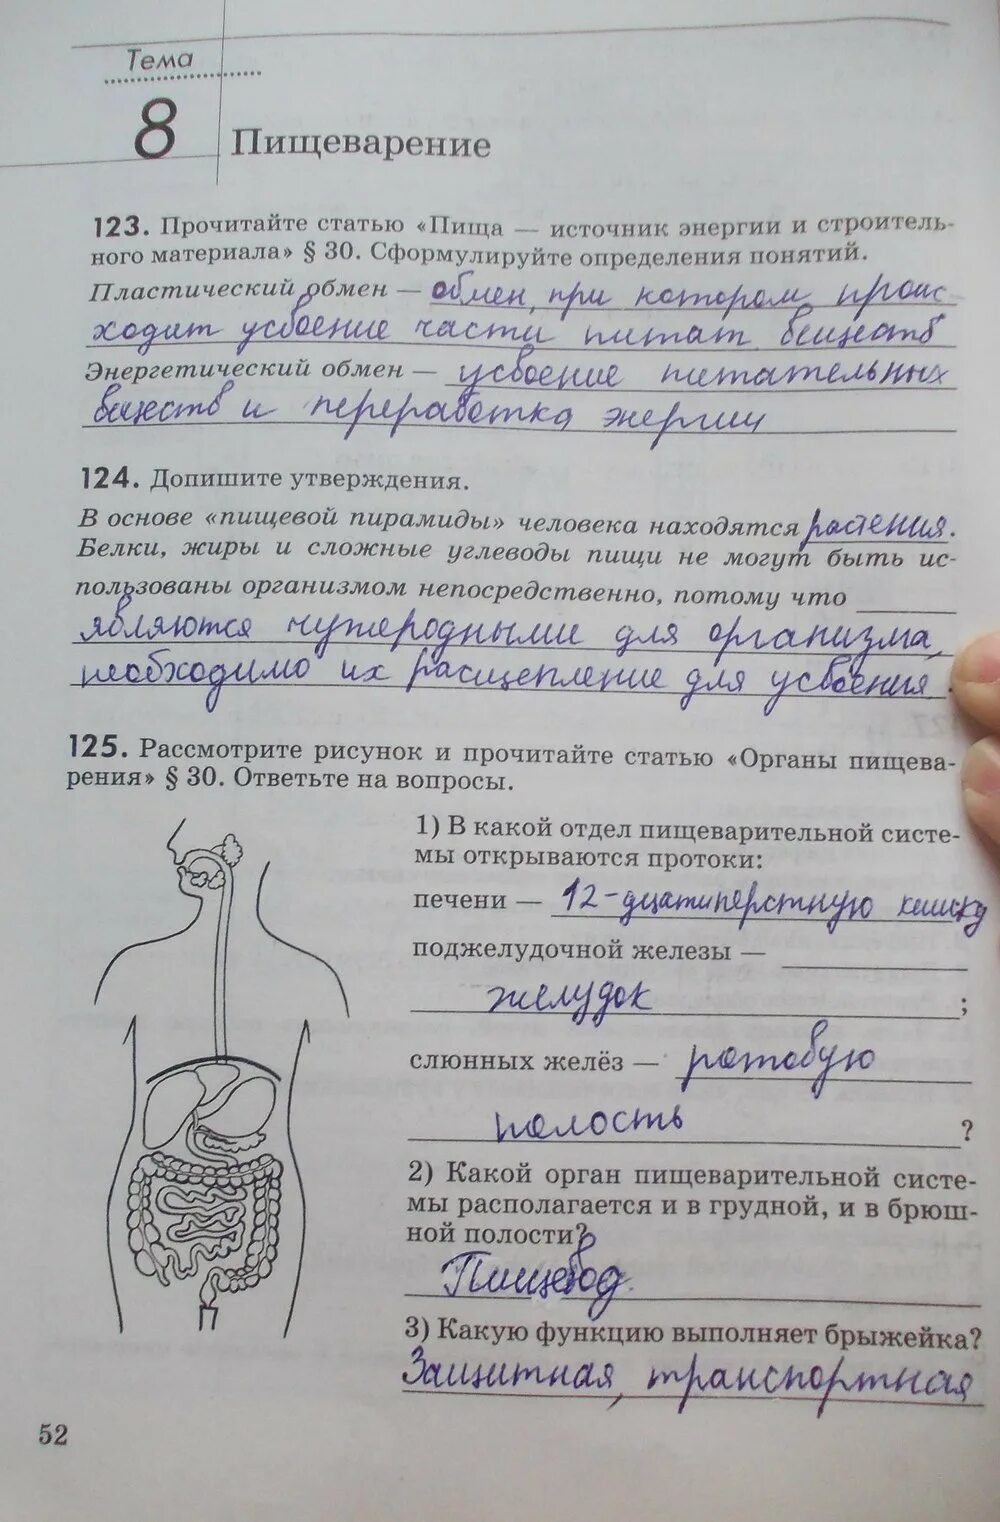 Тема
8 Пищеварение
123. Прочитайте статью «Пища — источник энергии и строитель-
ного материала» § 30. Сформулируйте определения понятий.
Пластический обмен — обмен, при котором проис
ходит усвоение части питат. веществ
Энергетический обмен — усвоение питательных
веществ и переработка энергии
124. Допишите утверждения.
В основе «пищевой пирамиды» человека находятся растения.
Белки, жиры и сложные углеводы пищи не могут быть ис-
пользованы организмом непосредственно, потому что
являются чужеродными для организма,
необходимо их расщепление для усвоения.
125. Рассмотрите рисунок и прочитайте статью «Органы пищева-
рения» § 30. Ответьте на вопросы.
1) В какой отдел пищеварительной систе-
мы открываются протоки:
печени — 12-дцатиперстную кишку
поджелудочной железы —
желудок ;
слюнных желёз — ротовую
полость ?
2) Какой орган пищеварительной систе-
мы располагается и в грудной, и в брюш-
ной полости?
Пищевод.
3) Какую функцию выполняет брыжейка?
Защитная, транспортная
52